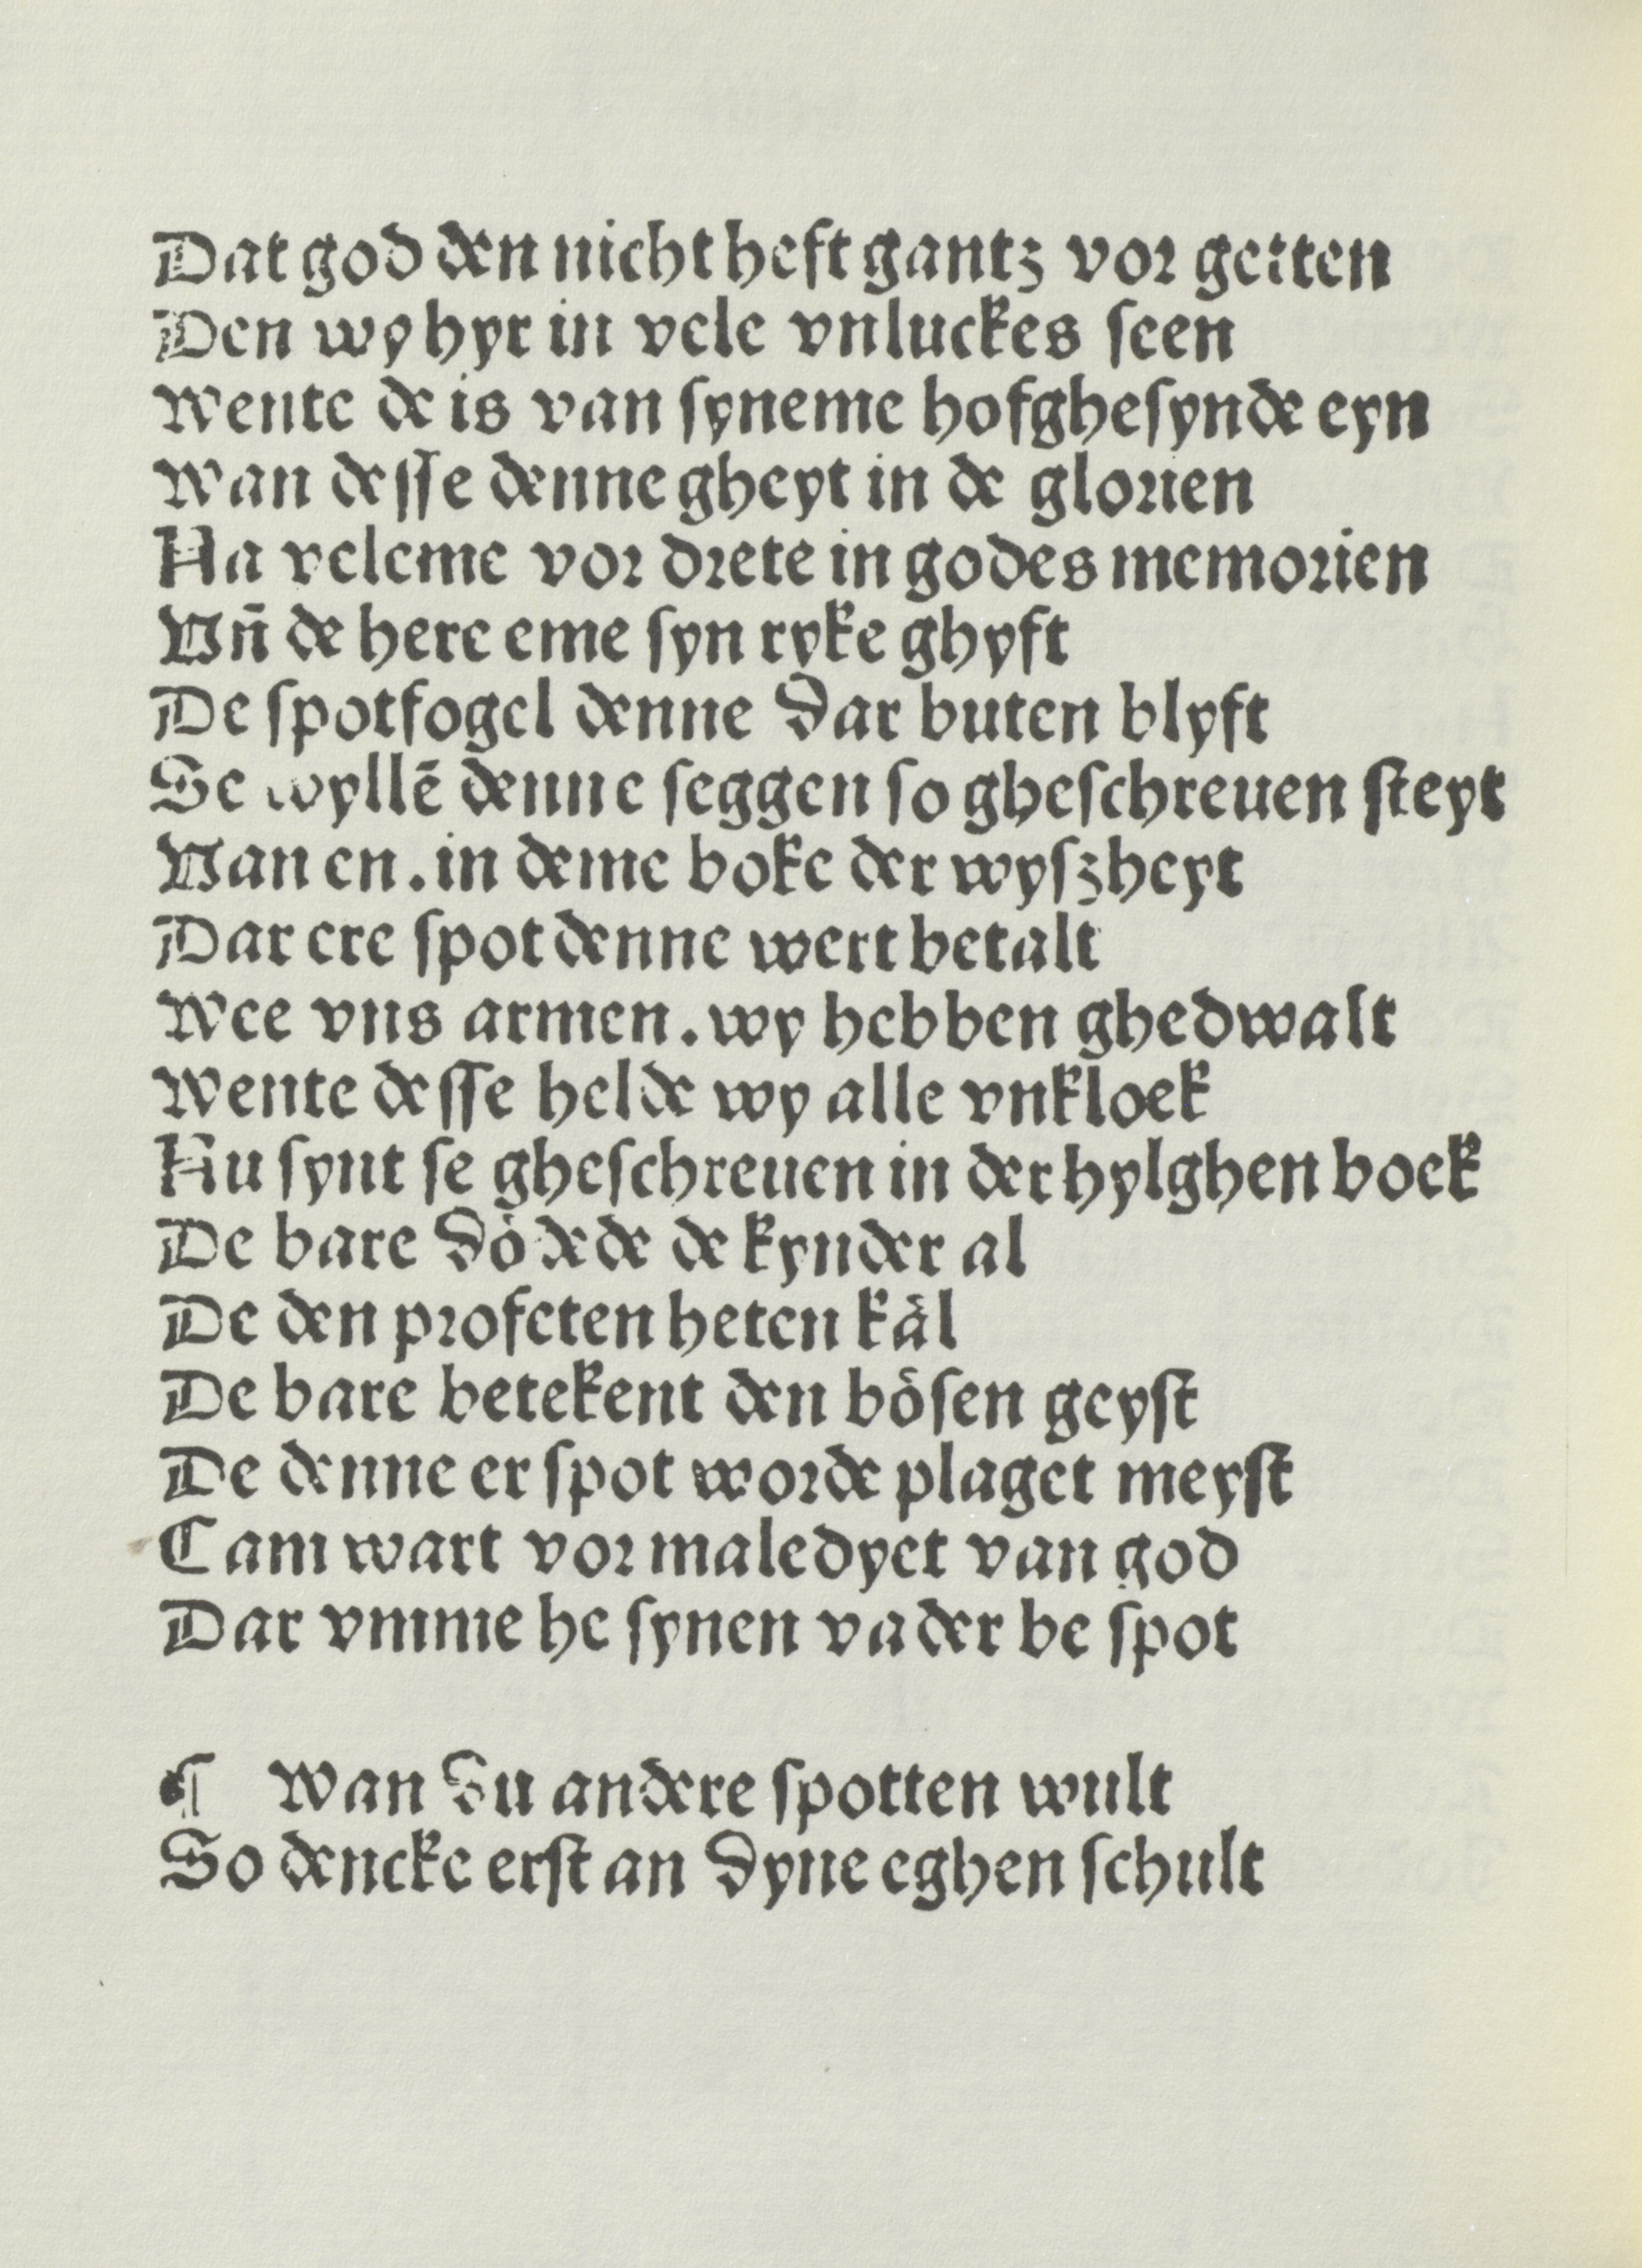 Dat god den nicht heft gantz vor getten
Den wy hyr in vele vnluckes seen
Wente de is van syneme hofghesynde eyn
Wan desse denne gheyt in de glorien
Na veleme vor drete in godes memorien
Vn̄ de here eme syn ryke ghyft
De spotfogel denne dar buten blyft
Se wyllē denne seggen so gheschreuen steyt
Van en. in deme boke der wyszheyt
Dar ere spot denne wert betalt
Wee vns armen. wy hebben ghedwalt
Wente desse helde wy alle vnkloek
Nu synt se gheschreuen in der hylghen boek
De bare dödede de kynder al
De den profeten heten kål
De bare betekent den bösen geyst
De denne er spot worde plaget meyst
Cam wart vor maledyet van god
Dar vmme he synen vader be spot
¶ Wan du andere spotten wult
So dencke erst an dyne eghen schult